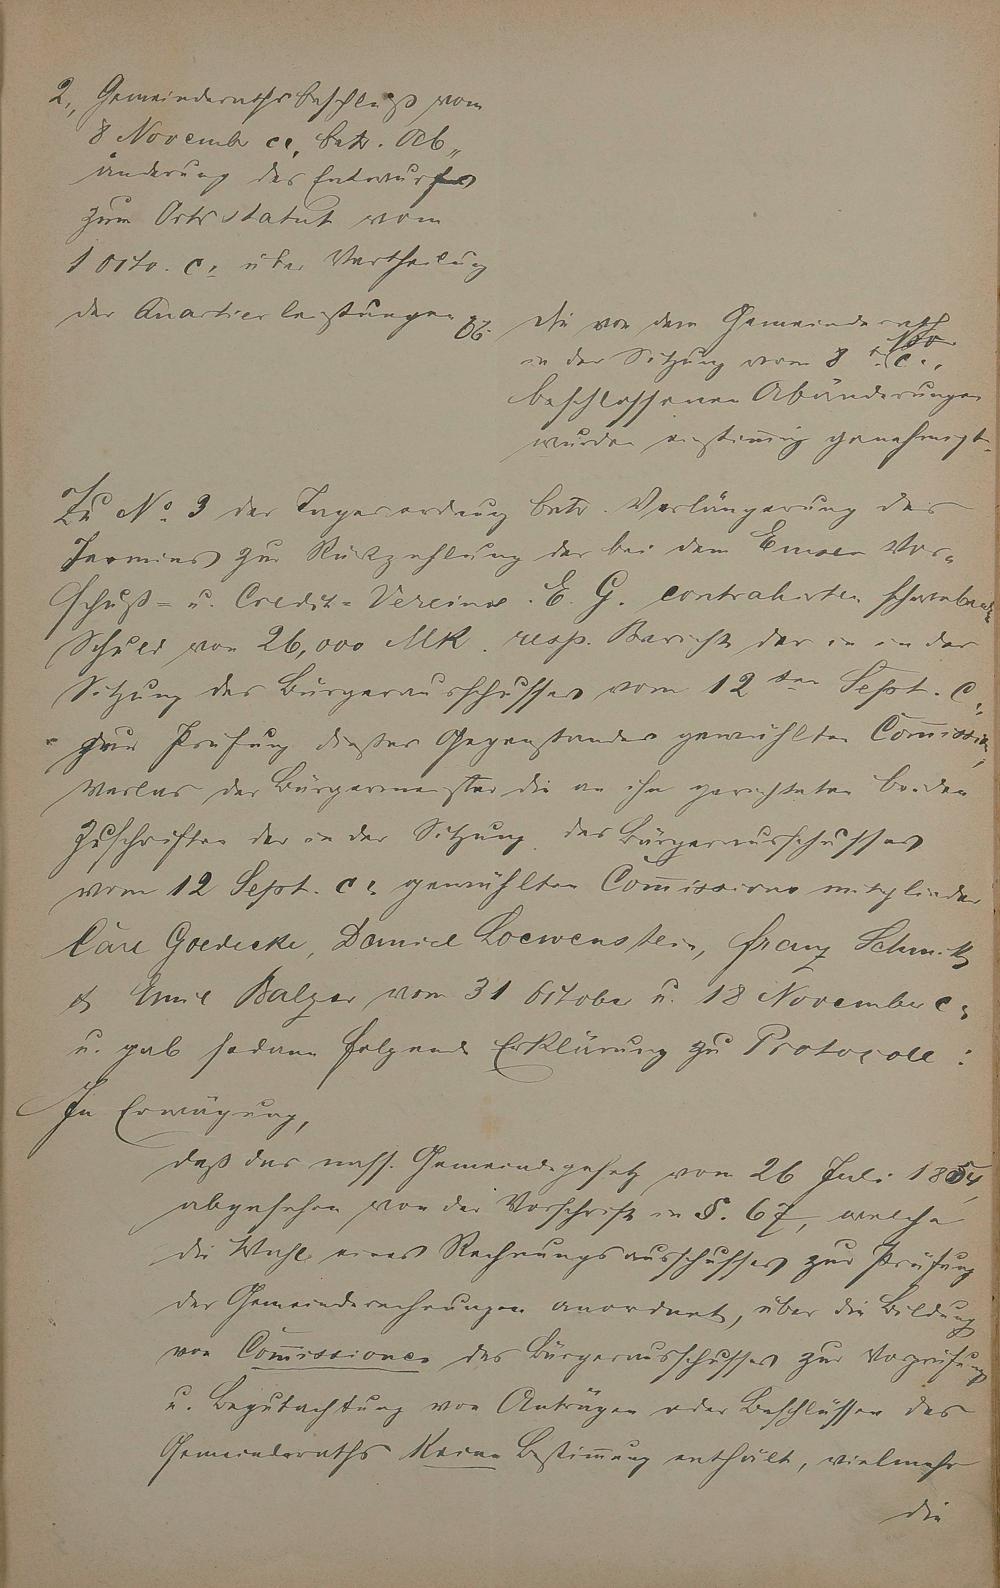 2., Gemeinderathsbeschluß vom
8 Novemb cr, betr. Ab„
änderung des Entwurfes
zum Ortsstatut vom
1 Octo. c., über Vertheilung
der Quartierleistungen
ad 2. Die von dem Gemeinderath
in der Sitzung vom 8 t. Nov c.,
beschlossenen Abänderungen
wurden einstimig genehmigt.
Zu No. 3 der Tagesordnung betr. Verlängerung des
Termines zur Rückzahlung der bei dem Emser Vor„
schuß- u. Credit-Vereine E. G. contrahirten schwebenden
Schuld von 26,000 Mk. resp. Bericht der in in der
Sitzung des Bürgerausschusses vom 12 ten Sept. c.,
zur Prüfung dießes Gegenstandes gewählten Comission,
verlas der Bürgermeister die an ihn gerichteten beiden
Zuschriften der in der Sitzung des Bürgerausschusses
vom 12 Sept. c. gewählten Comissions mitglieder
Carl Goedecke, Daniel Loewenstein, Franz Schmitz
& Emil Balzer vom 31 October u. 18 November c.
u. gab sodann folgende Erklärung zu Protocoll:
In Erwägung,
daß das nass. Gemeindegesetz vom 26 Juli 1854,
abgesehen von der Vorschrift in §. 67, welche
die Wahl eines Rechnungsausschusses zur Prüfung
der Gemeinderechnungen anordnet, über die Bildung
von Comissionen des Bürgerausschusses zur Vorprüfung
u. Begutachtung von Anträgen oder Beschlüssen des
Gemeinderaths keine Bestimung enthält, vielmehr
die